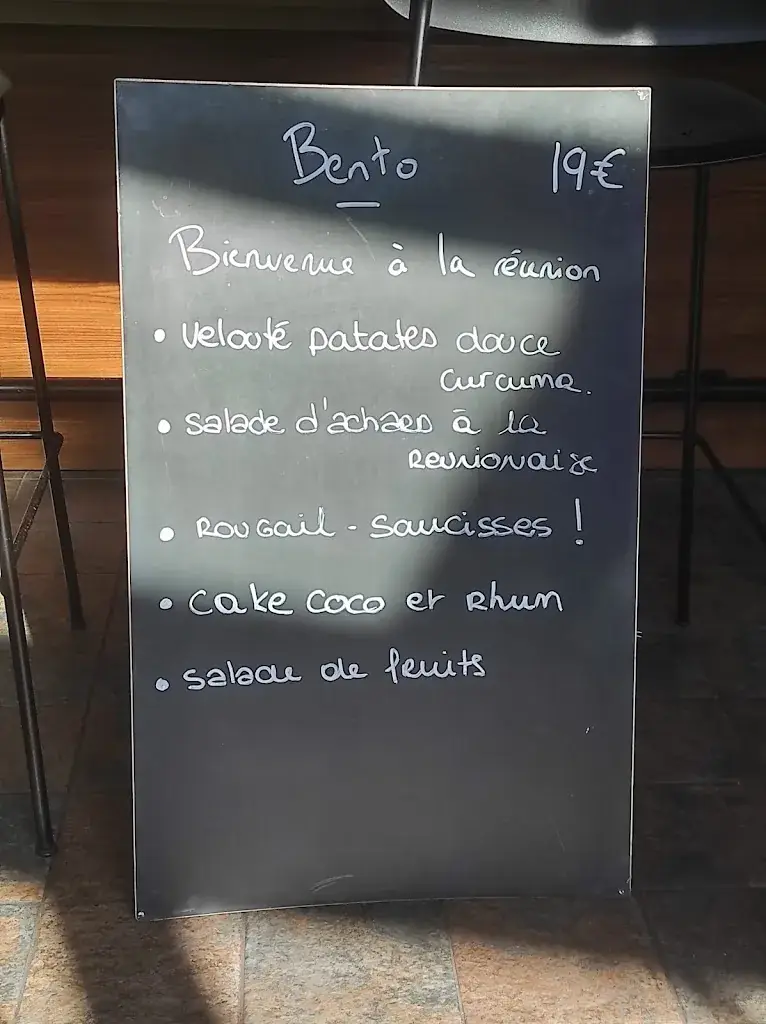 Bento 19€
Bienvenue à la réunion
• velouté patates douce
curcuma.
• salade d'achards à la
Reunionaise
• Rougail - saucisses !
• cake coco et Rhum
• salade de fruits